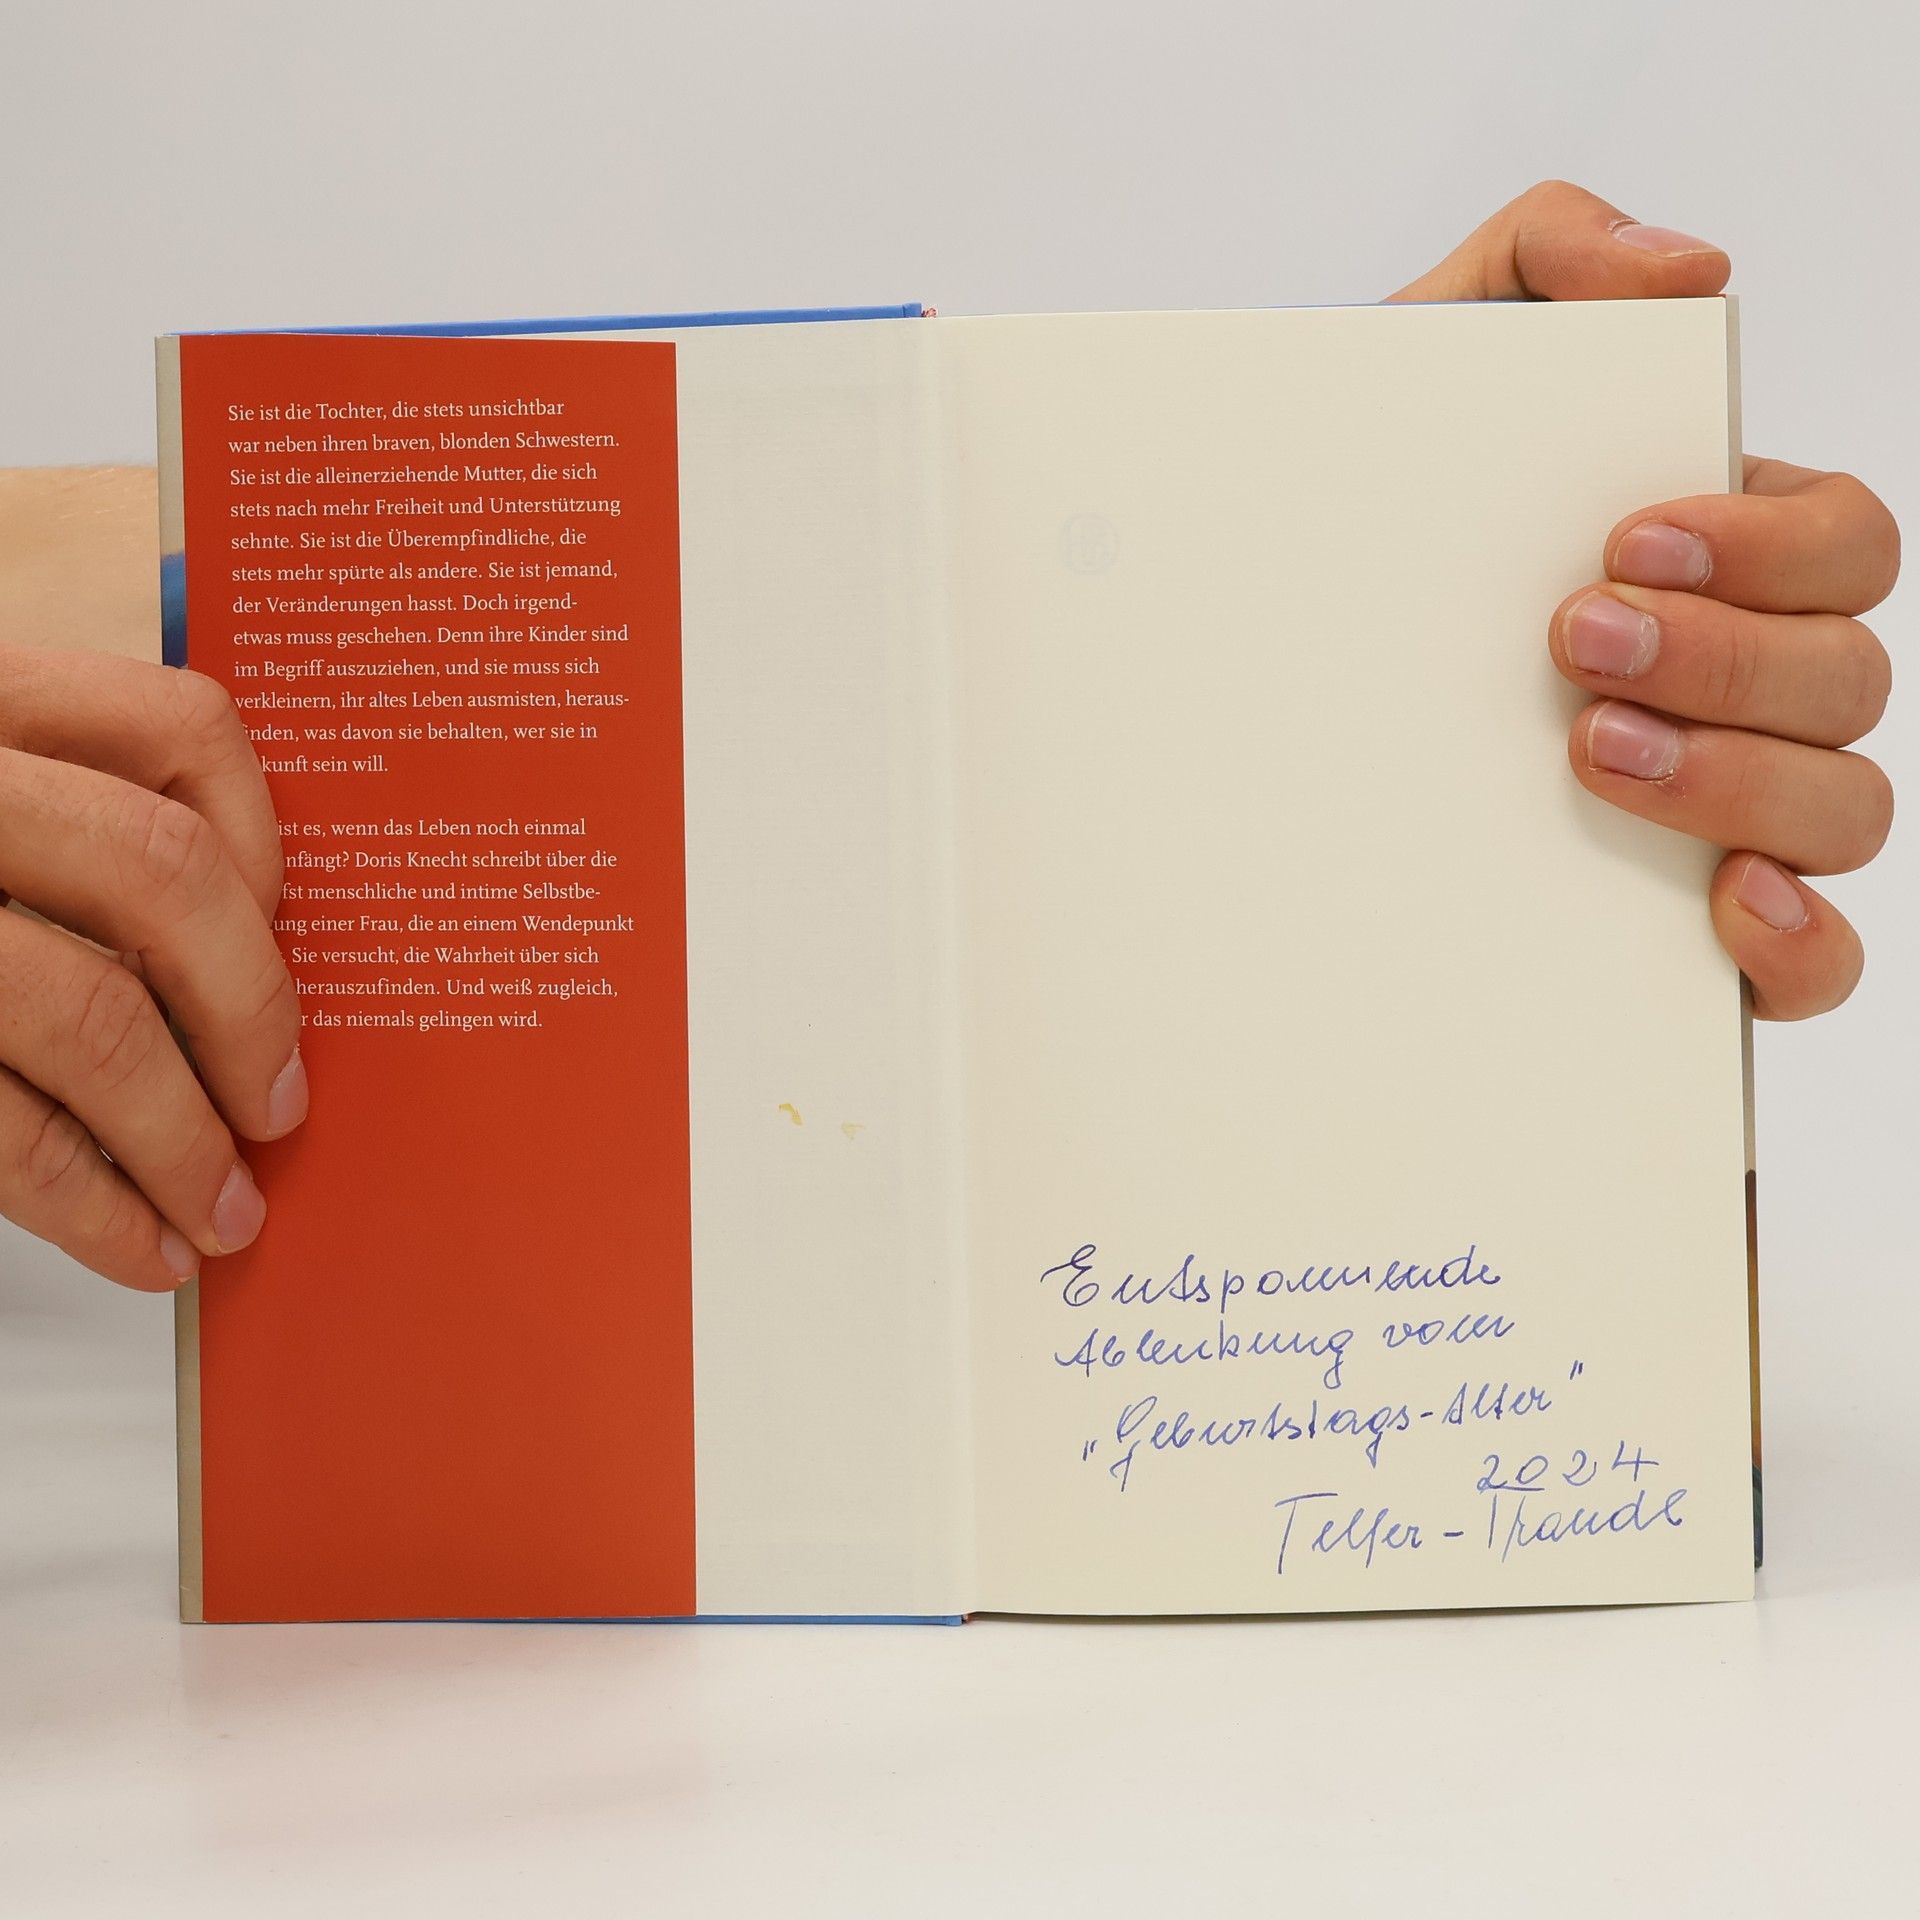 Sie ist die Tochter, die stets unsichtbar
war neben ihren braven, blonden Schwestern.
Sie ist die alleinerziehende Mutter, die sich
stets nach mehr Freiheit und Unterstützung
sehnte. Sie ist die Überempfindliche, die
stets mehr spürte als andere. Sie ist jemand,
der Veränderungen hasst. Doch irgend-
etwas muss geschehen. Denn ihre Kinder sind
im Begriff auszuziehen, und sie muss sich
verkleinern, ihr altes Leben ausmisten, heraus-
inden, was davon sie behalten, wer sie in
kunft sein will.
ist es, wenn das Leben noch einmal
nfängt? Doris Knecht schreibt über die
fst menschliche und intime Selbstbe-
ung einer Frau, die an einem Wendepunkt
. Sie versucht, die Wahrheit über sich
herauszufinden. Und weiß zugleich,
r das niemals gelingen wird.
Entspannende
Ablenkung vom
"Geburtstags-Alter"
2024
Telfer-Traudl